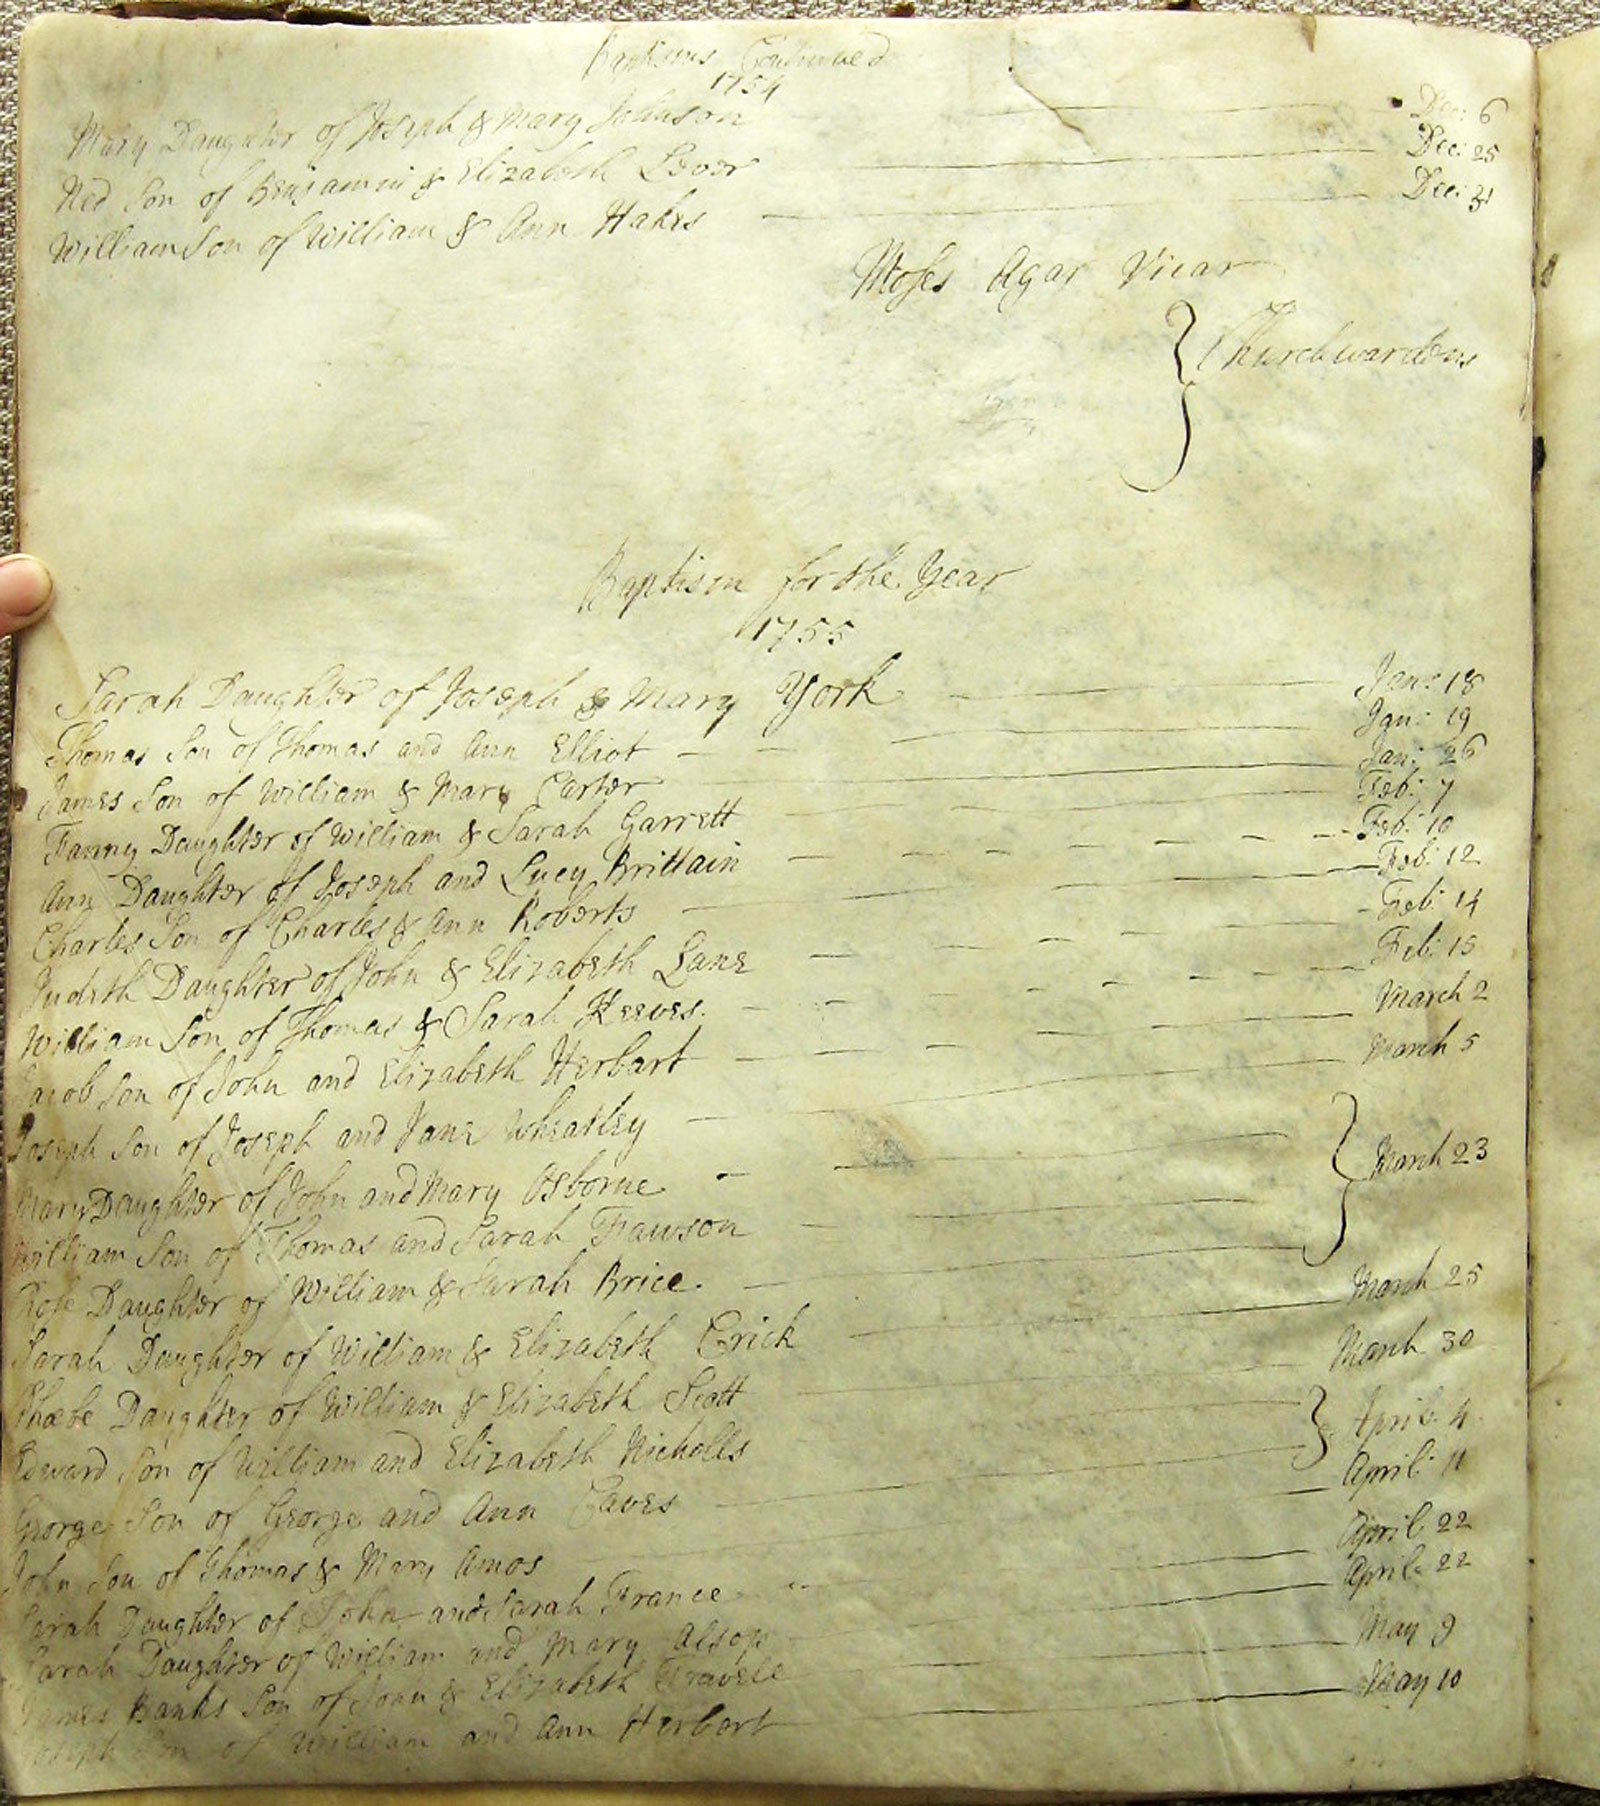 Baptisms Continued
1754
Mary Daughter of Joseph & Mary Johnson Dec: 6
Ned Son of Benjamin & Elizabeth Lever Dec: 25
William Son of William & Ann Hakes Dec: 31
Moses Agar Vicar
Churchwardens
Baptism for the Year
1755
Sarah Daughter of Joseph & Mary York Jan: 18
Thomas Son of Thomas and Ann Elliot Jan: 19
James Son of William & Mary Carter Jan: 26
Fanny Daughter of William & Sarah Garrett Feb: 7
Ann Daughter of Joseph and Lucy Brittain Feb: 10
Charles Son of Charles & Ann Roberts Feb: 12
Judith Daughter of John & Elizabeth Lane Feb: 14
William Son of Thomas & Sarah Reeves. Feb: 15
Jacob Son of John and Elizabeth Herbart March 2
Joseph Son of Joseph and Jane Wheatley March 5
Mary Daughter of John and Mary Osborne
William Son of Thomas and Sarah Frawson March 23
Rose Daughter of William & Sarah Brice.
Sarah Daughter of William & Elizabeth Crick March 25
Phœbe Daughter of William & Elizabeth Scott March 30
Edward Son of William and Elizabeth Nicholls April: 4
George Son of George and Ann Eaves
John Son of Thomas & Mary Amos April: 11
Sarah Daughter of John and Sarah France April: 22
Sarah Daughter of William and Mary Alsop April: 22
James Banks Son of John & Elizabeth May 9
Joseph Son of William and Ann Herbert May 10